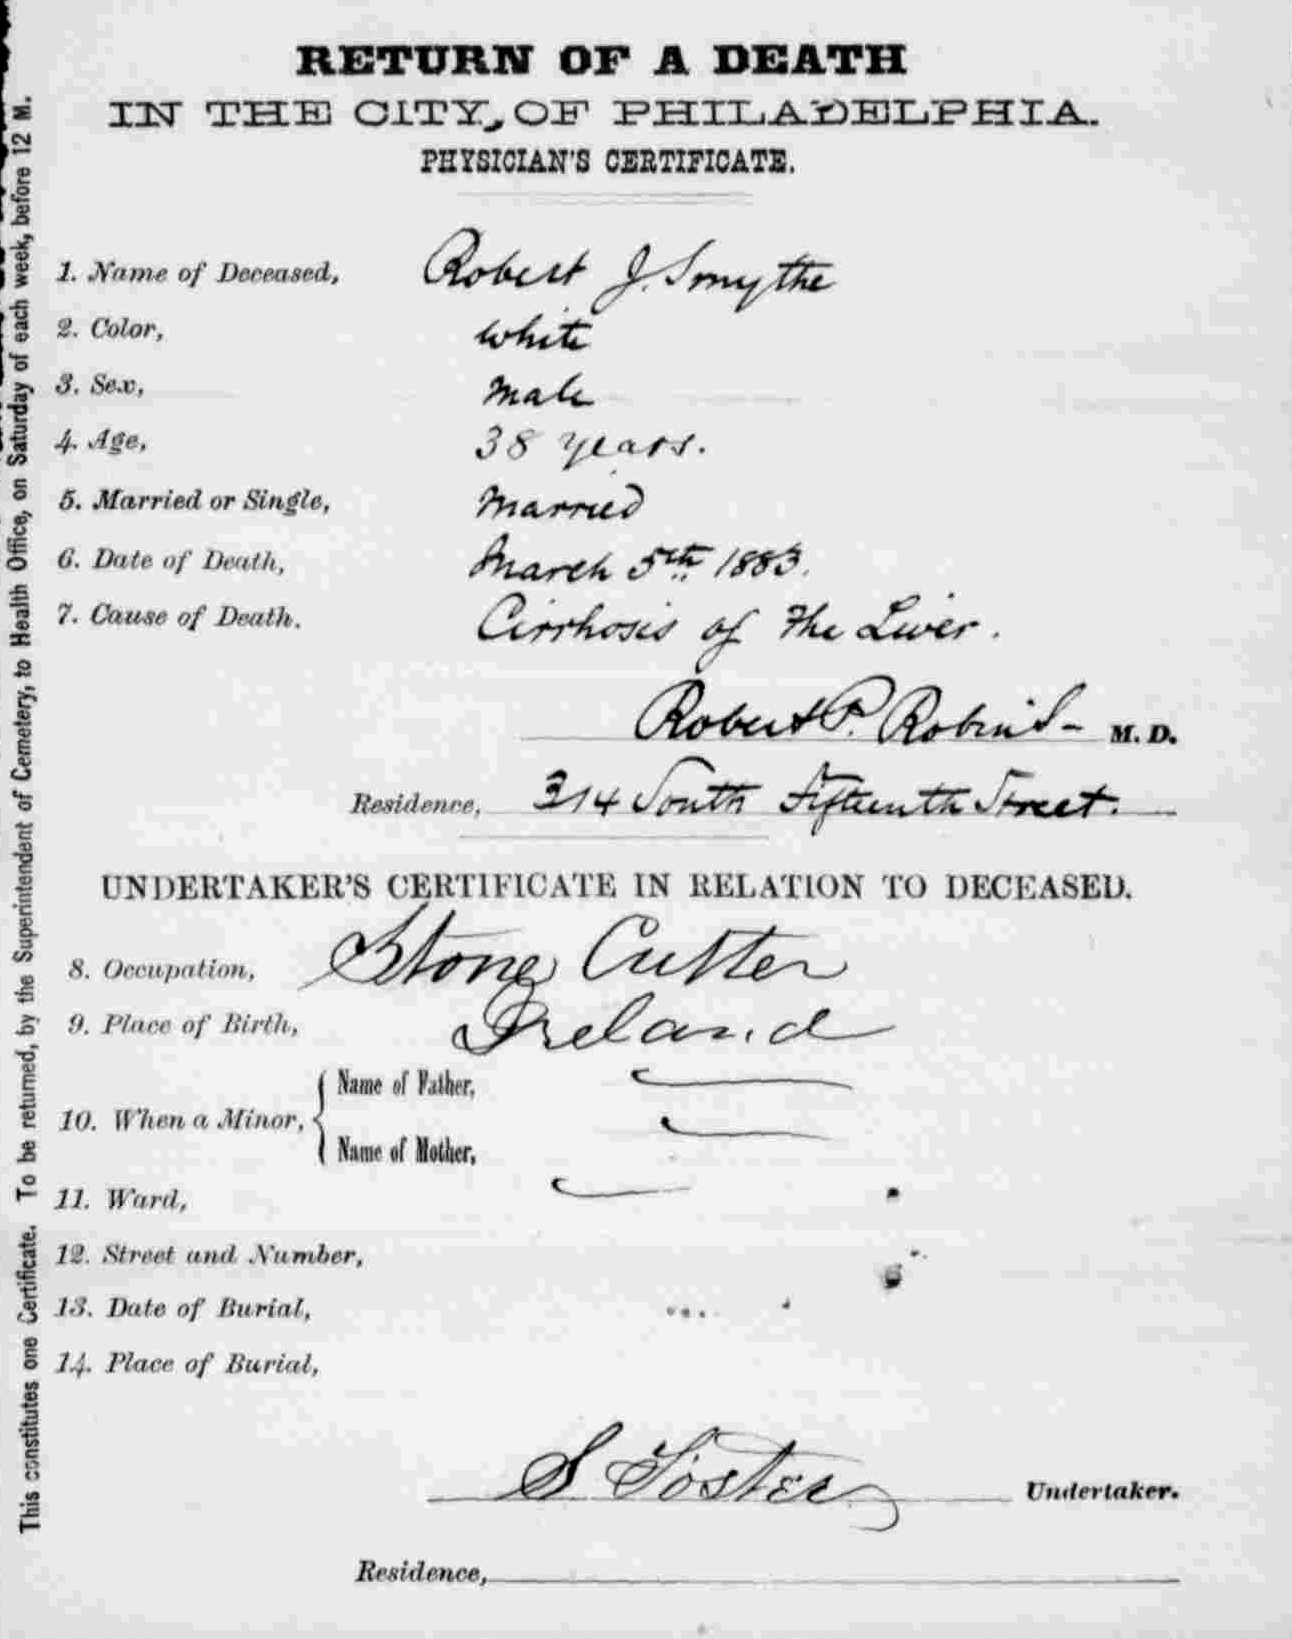 RETURN OF A DEATH
IN THE CITY, OF PHILADELPHIA.
PHYSICIAN'S CERTIFICATE.
1. Name of Deceased, Robert J. Smythe
2. Color, White
3. Sex, Male
4. Age, 38 years.
5. Married or Single, Married
6. Date of Death, March 5th 1883.
7. Cause of Death. Cirrhosis of the Liver.
Robert P. Robins M. D.
Residence, 314 South Fifteenth Street.
UNDERTAKER'S CERTIFICATE IN RELATION TO DECEASED.
8. Occupation, Stone Cutter
9. Place of Birth, Ireland
10. When a Minor, { Name of Father,
Name of Mother,
11. Ward,
12. Street and Number,
13. Date of Burial,
14. Place of Burial,
S Foster Undertaker.
Residence,
This constitutes one Certificate. To be returned, by the Superintendent of Cemetery, to Health Office, on Saturday of each week, before 12 M.